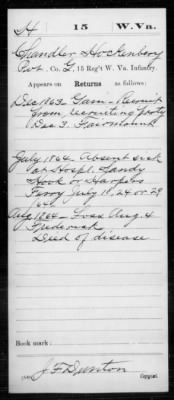 H 15 W. Va.
Chandler Hockenbery
Pvt., Co. G, 15 Reg't W. Va. Infantry.
Appears on
Returns as follows:
Dec 1863. Gain - Recruit
from recruiting party
Dec 3. Fairmount
July 1864. Absent sick
at Hospl. Sandy
Hook or Harpers
Ferry July 19, 24 or 29
/64
Aug 1864 - Loss Aug. 4
Frederick
Died of disease
Book mark:
J F Dunton
Copyist.